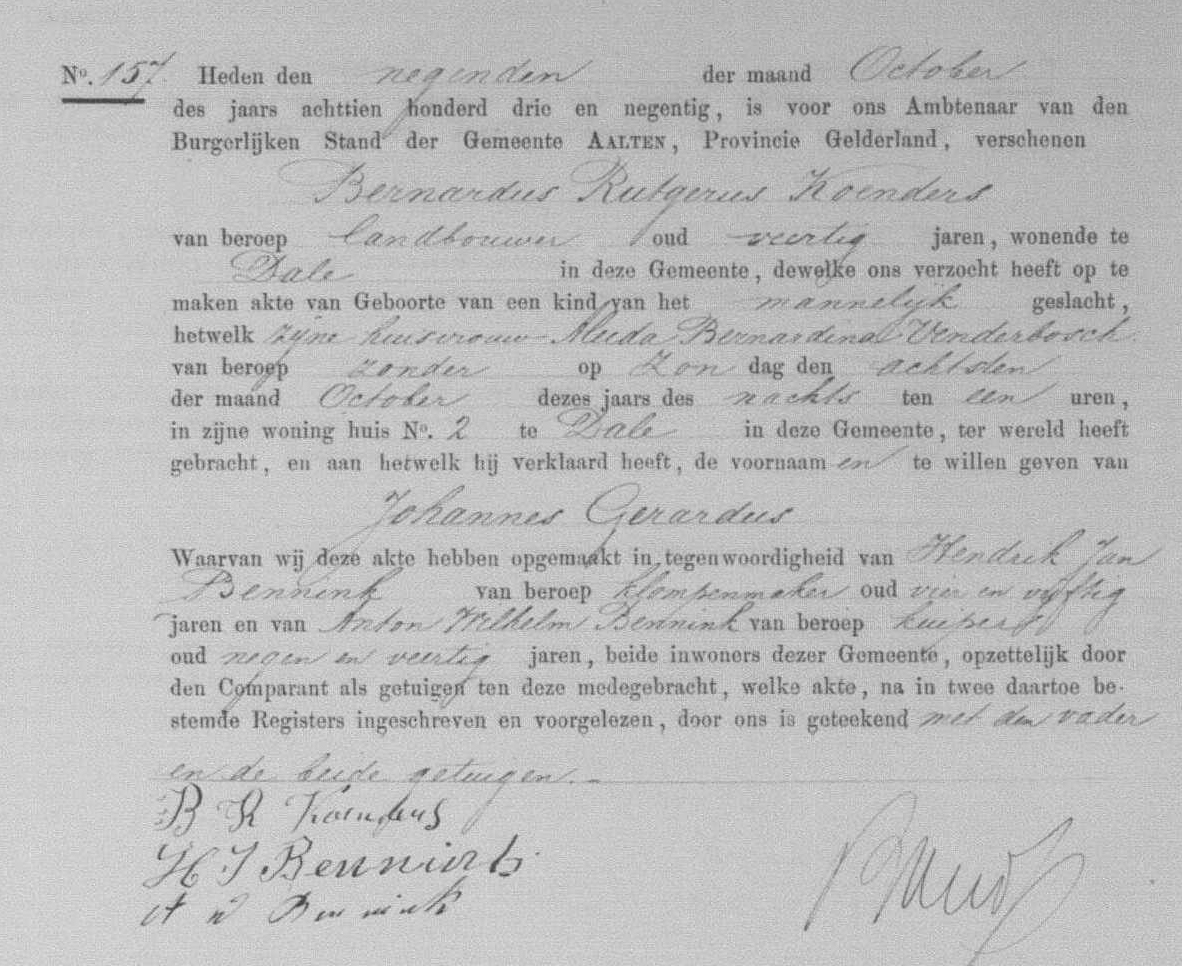 No. 157 Heden den negenden der maand October
des jaars achttien honderd drie en negentig, is voor ons Ambtenaar van den
Burgerlijken Stand der Gemeente AALTEN, Provincie Gelderland, verschenen
Bernardus Rutgerus Koenders
van beroep landbouwer oud veertig jaren, wonende te
Dale in deze Gemeente, dewelke ons verzocht heeft op te
maken akte van Geboorte van een kind van het mannelijk geslacht,
hetwelk zijne huisvrouw Aleida Bernardina Venderbosch
van beroep zonder op Zon dag den achtsten
der maand October dezes jaars des nachts ten een uren,
in zijne woning huis No. 2 te Dale in deze Gemeente, ter wereld heeft
gebracht, en aan hetwelk hij verklaard heeft, de voornaam en te willen geven van
Johannes Gerardus
Waarvan wij deze akte hebben opgemaakt in tegenwoordigheid van Hendrik Jan
Bennink van beroep klompenmaker oud vier en vijftig
jaren en van Anton Wilhelm Bennink van beroep kuiper
oud negen en veertig jaren, beide inwoners dezer Gemeente, opzettelijk door
den Comparant als getuigen ten deze medegebracht, welke akte, na in twee daartoe be-
stemde Registers ingeschreven en voorgelezen, door ons is geteekend met den vader
en de beide getuigen. -
B R Koenders
H J Bennink
A W Bennink